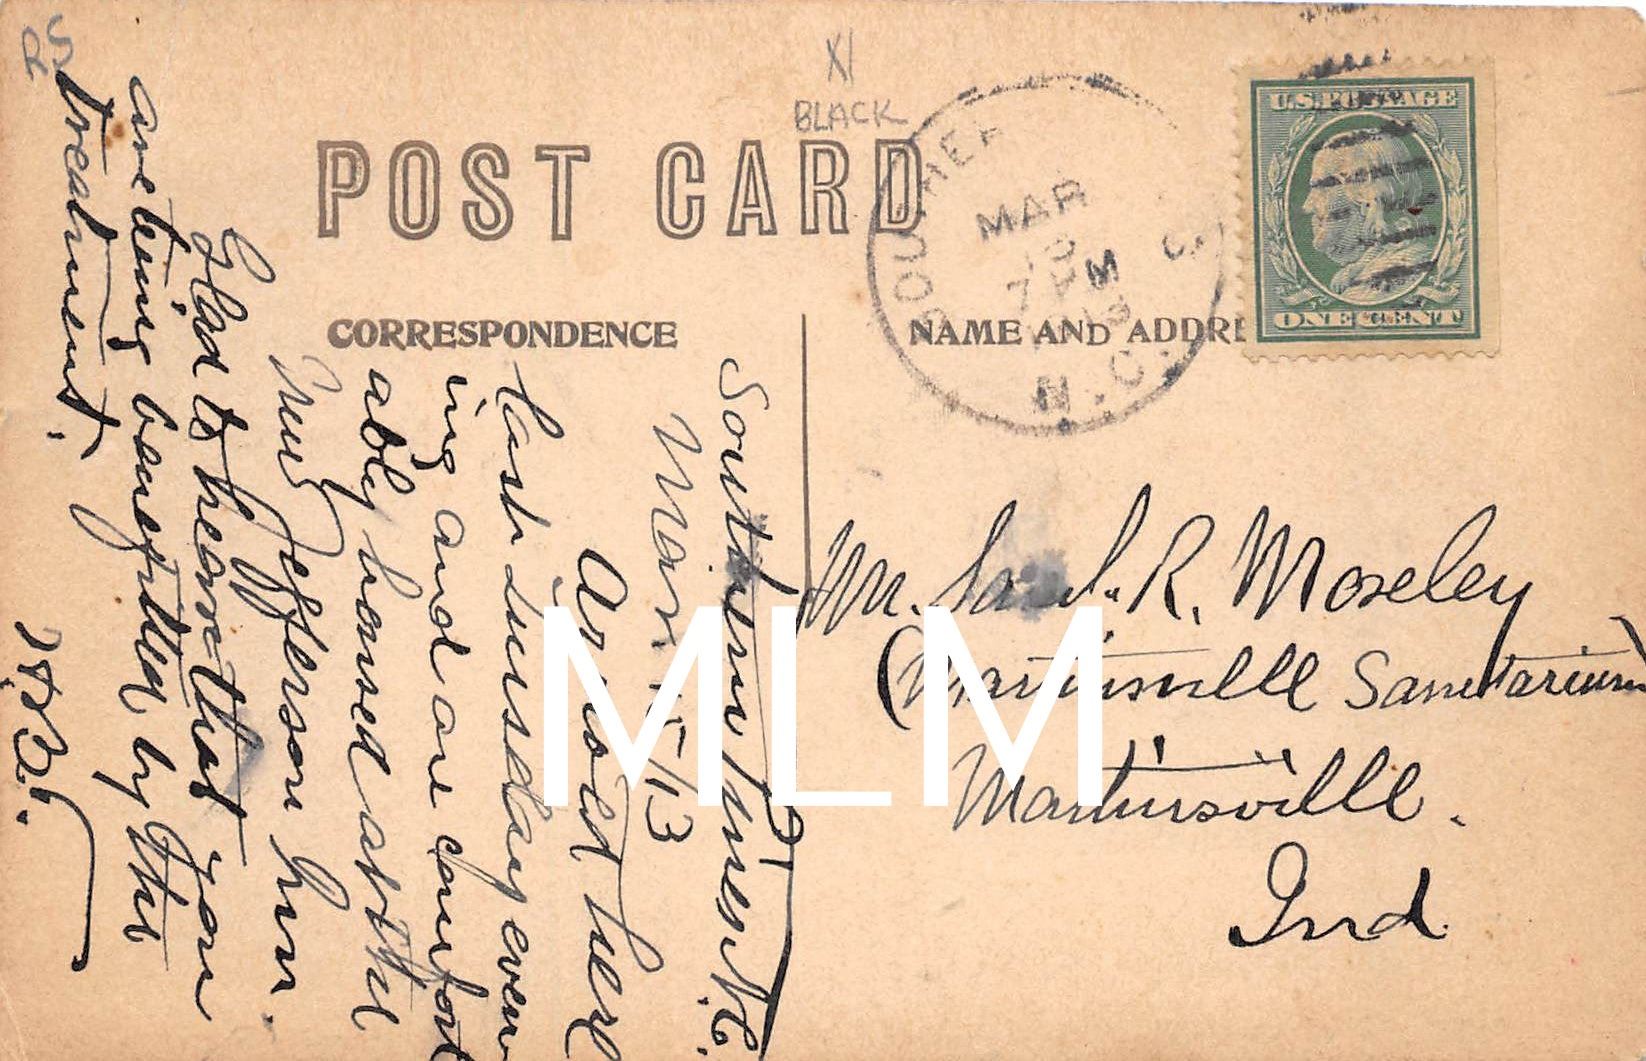 XI
BLACK
POST CARD
CORRESPONDENCE
NAME AND ADDRE
U.S. POSTAGE
ONE CENT
SOUTHER
MAR
7 PM
N.C.
Southern Pines N.C.
Mar. 15/13
Arrived here
last Thursday even
ing and are comfort
ably housed at the
New Jefferson Inn.
Glad to hear that you
are being benefitted by the
treatment.
Mr. Saml. R. Moseley
(Martinsville Sanitarium)
Martinsville.
Ind.
MLM